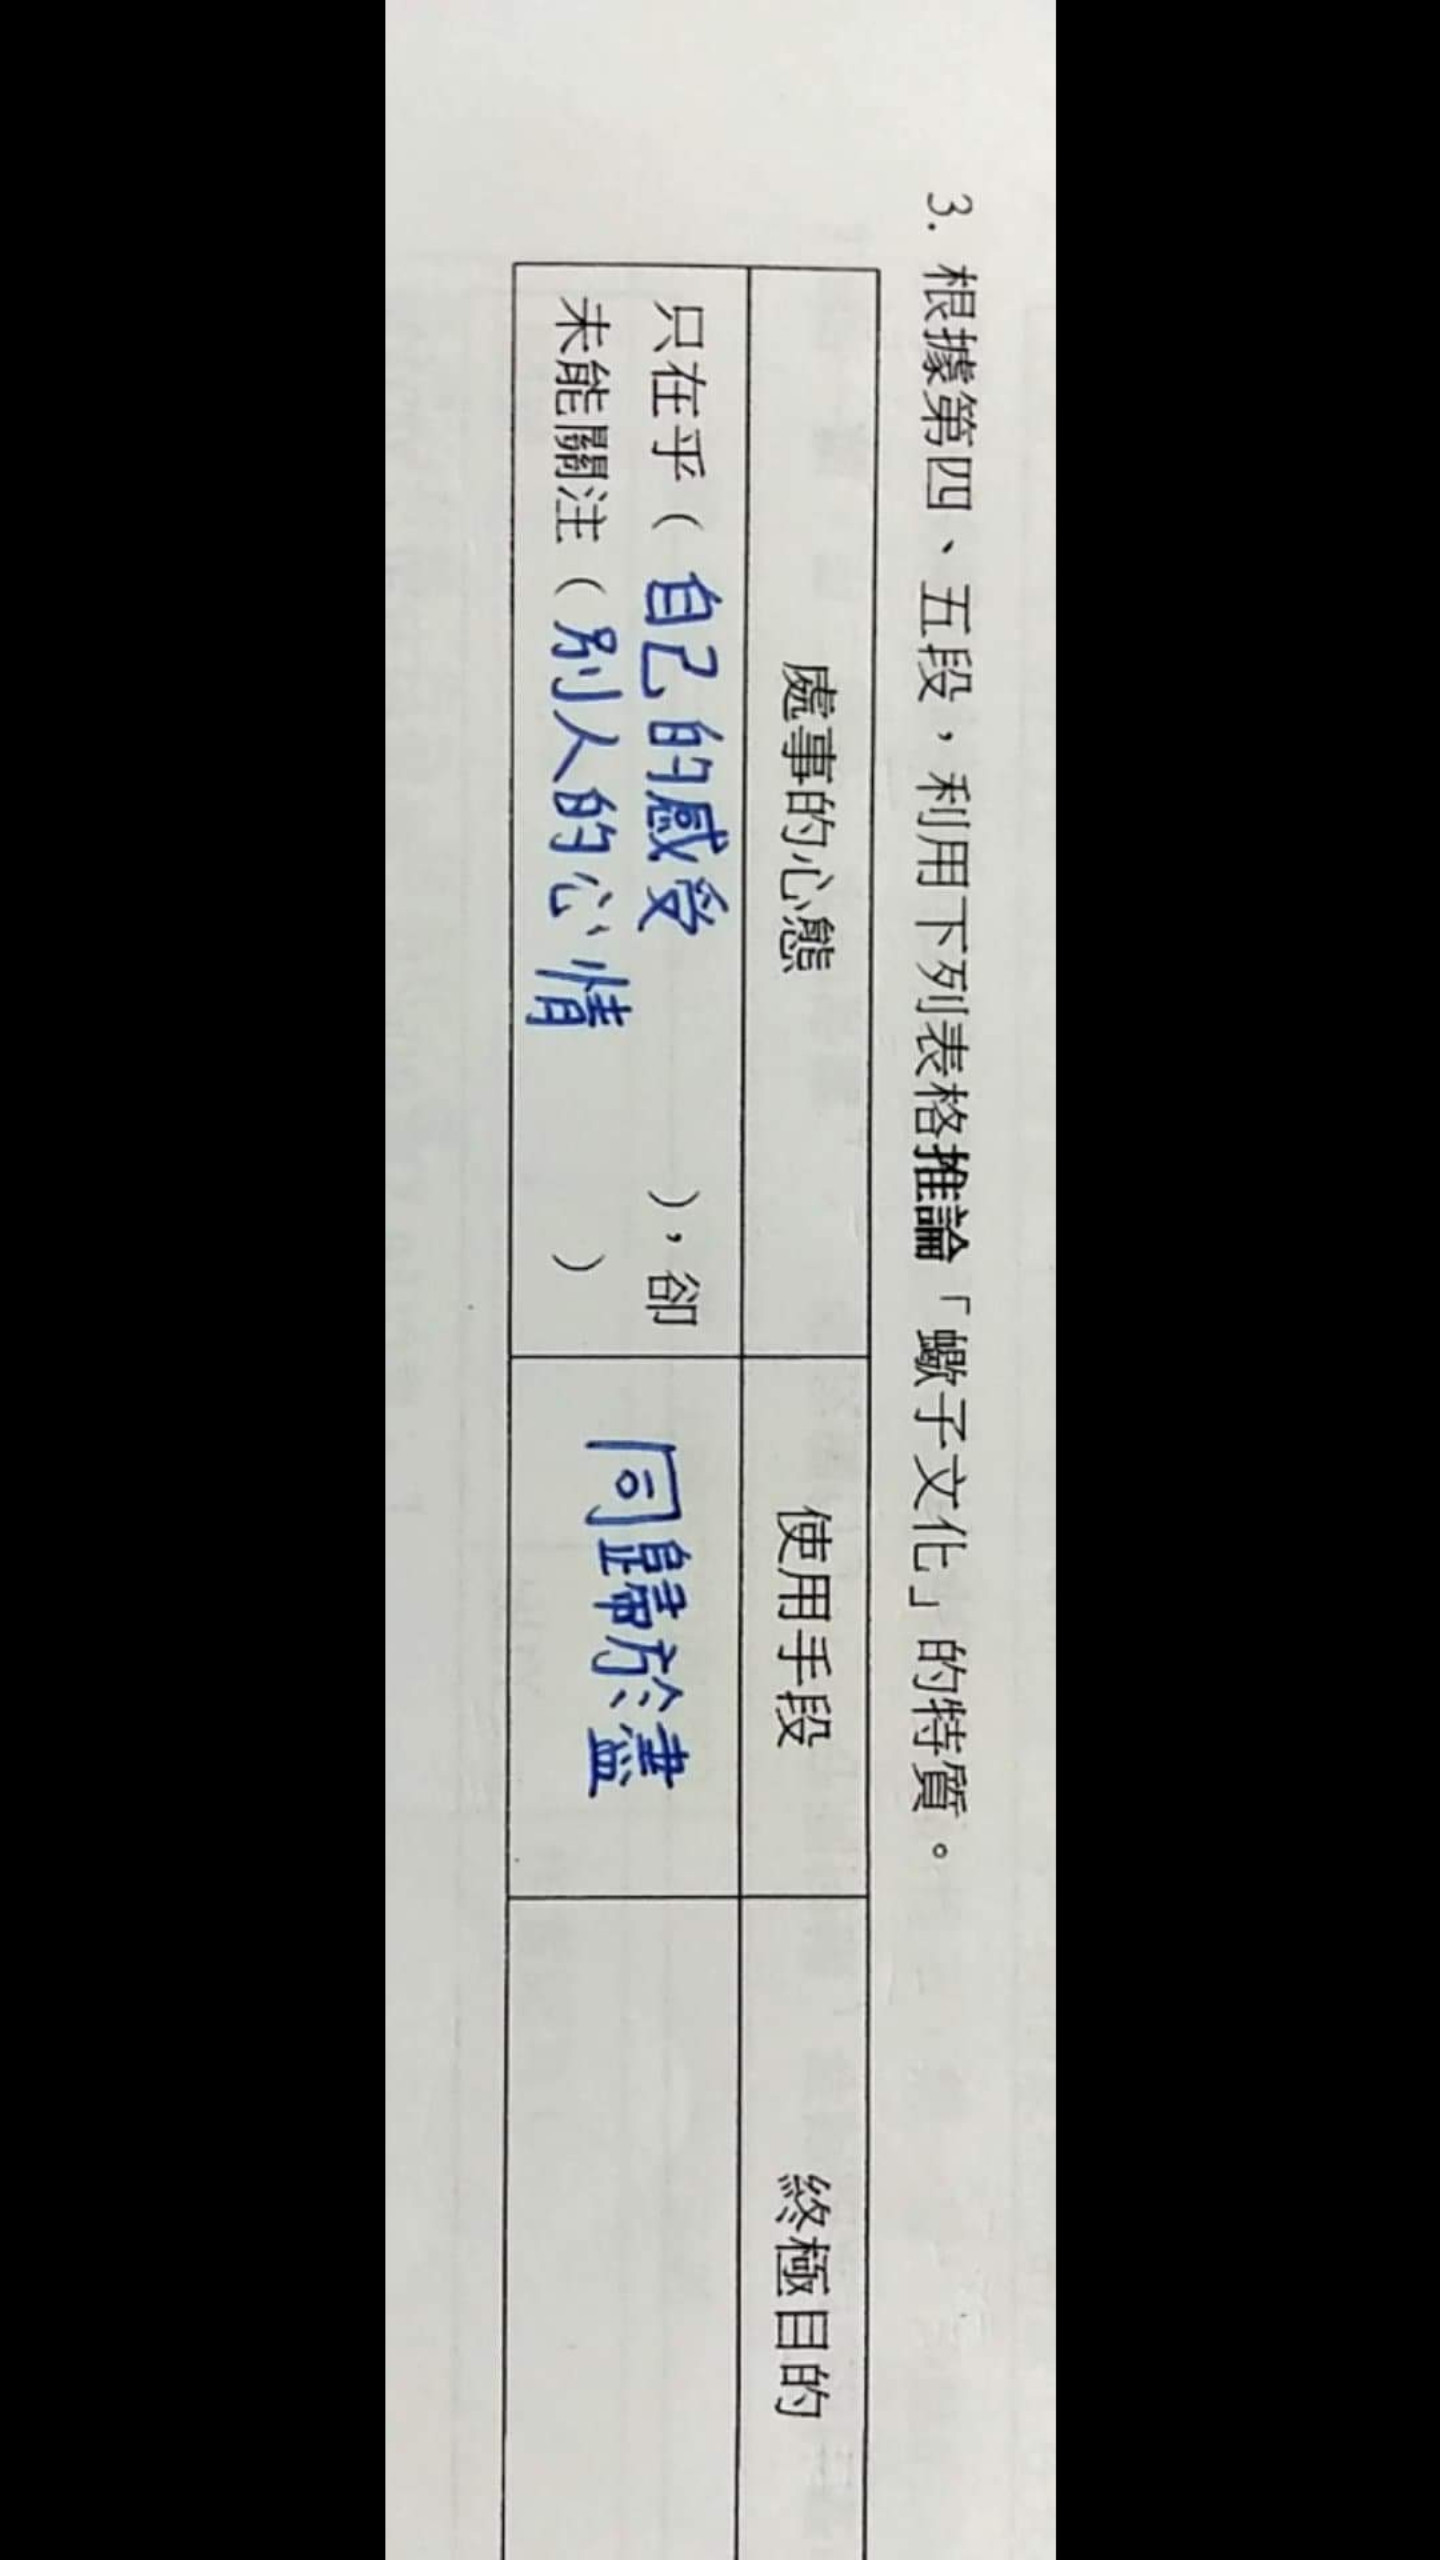 3. 根據第四、五段，利用下列表格推論「蠍子文化」的特質。
處事的心態
使用手段
終極目的
只在乎（自己的感受），卻
未能關注（別人的心情）
同歸於盡